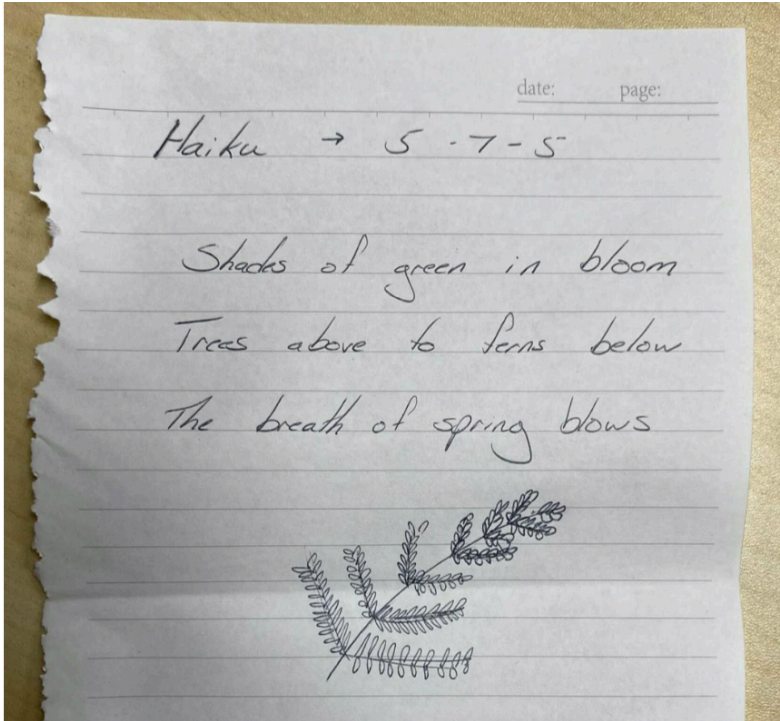 date: page:
Haiku → 5-7-5
Shades of green in bloom
Trees above to ferns below
The breath of spring blows